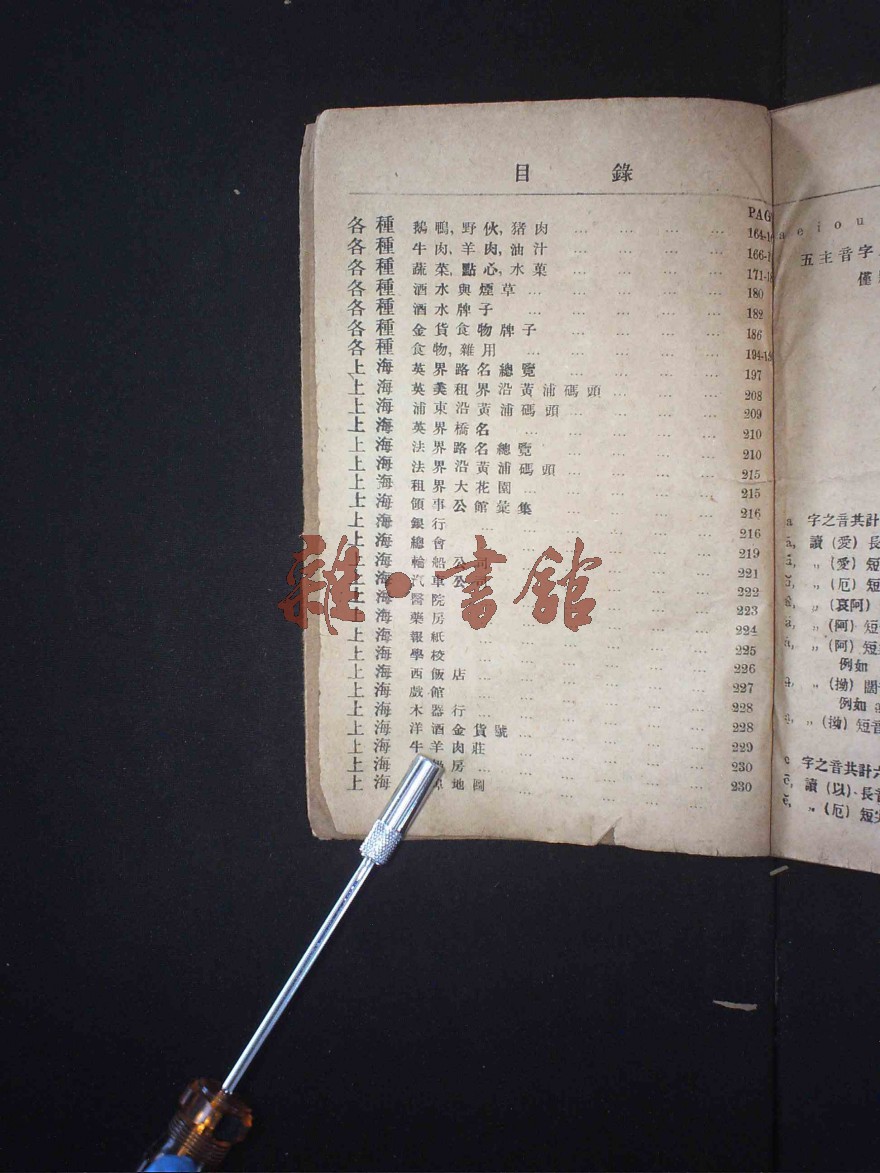 目錄
PAG
各種 鵝鴨,野伙,猪肉 ... ... ... ... 164-1
各種 牛肉,羊肉,油汁 ... ... ... ... 166-1
各種 蔬菜,點心,水菓 ... ... ... ... 171-18
各種 酒水與煙草 ... ... ... ... ... 180
各種 酒水牌子 ... ... ... ... ... 182
各種 金貨食物牌子 ... ... ... ... 186
各種 食物,雜用 ... ... ... ... ... 194-19
上海 英界路名總覽 ... ... ... ... 197
上海 英美租界沿黃浦碼頭 ... ... ... 208
上海 浦東沿黃浦碼頭 ... ... ... ... 209
上海 英界橋名 ... ... ... ... 210
上海 法界路名總覽 ... ... ... ... 210
上海 法界沿黃浦碼頭 ... ... ... ... 215
上海 租界大花園 ... ... ... ... ... 215
上海 領事公館彙集 ... ... ... ... 216
上海 銀行 ... ... ... ... ... 216
上海 總會 ... ... ... ... ... 219
上海 輪船公司 ... ... ... ... 221
上海 汽車公司 ... ... ... ... 222
上海 醫院 ... ... ... ... 223
上海 藥房 ... ... ... ... 224
上海 報紙 ... ... ... ... ... 225
上海 學校 ... ... ... ... ... 226
上海 西飯店 ... ... ... ... ... 227
上海 戲館 ... ... ... ... ... 228
上海 木器行 ... ... ... ... ... 228
上海 洋酒金貨號 ... ... ... ... 229
上海 牛羊肉莊 ... ... ... ... 230
上海 房 ... ... ... ... ... 230
上海 地圖 ... ... ... ...
雜·書館
a e i o u
五主音字
僅
a 字之音共計
ā, 讀 (愛) 長
〃 (愛) 短
〃 (厄) 短
〃 (哀阿)
〃 (阿) 短
〃 (阿) 短
例如
〃 (拗) 闊
例如
〃 (拗) 短音
e 字之音共計六
ē, 讀 (以)、長音
〃 (厄) 短